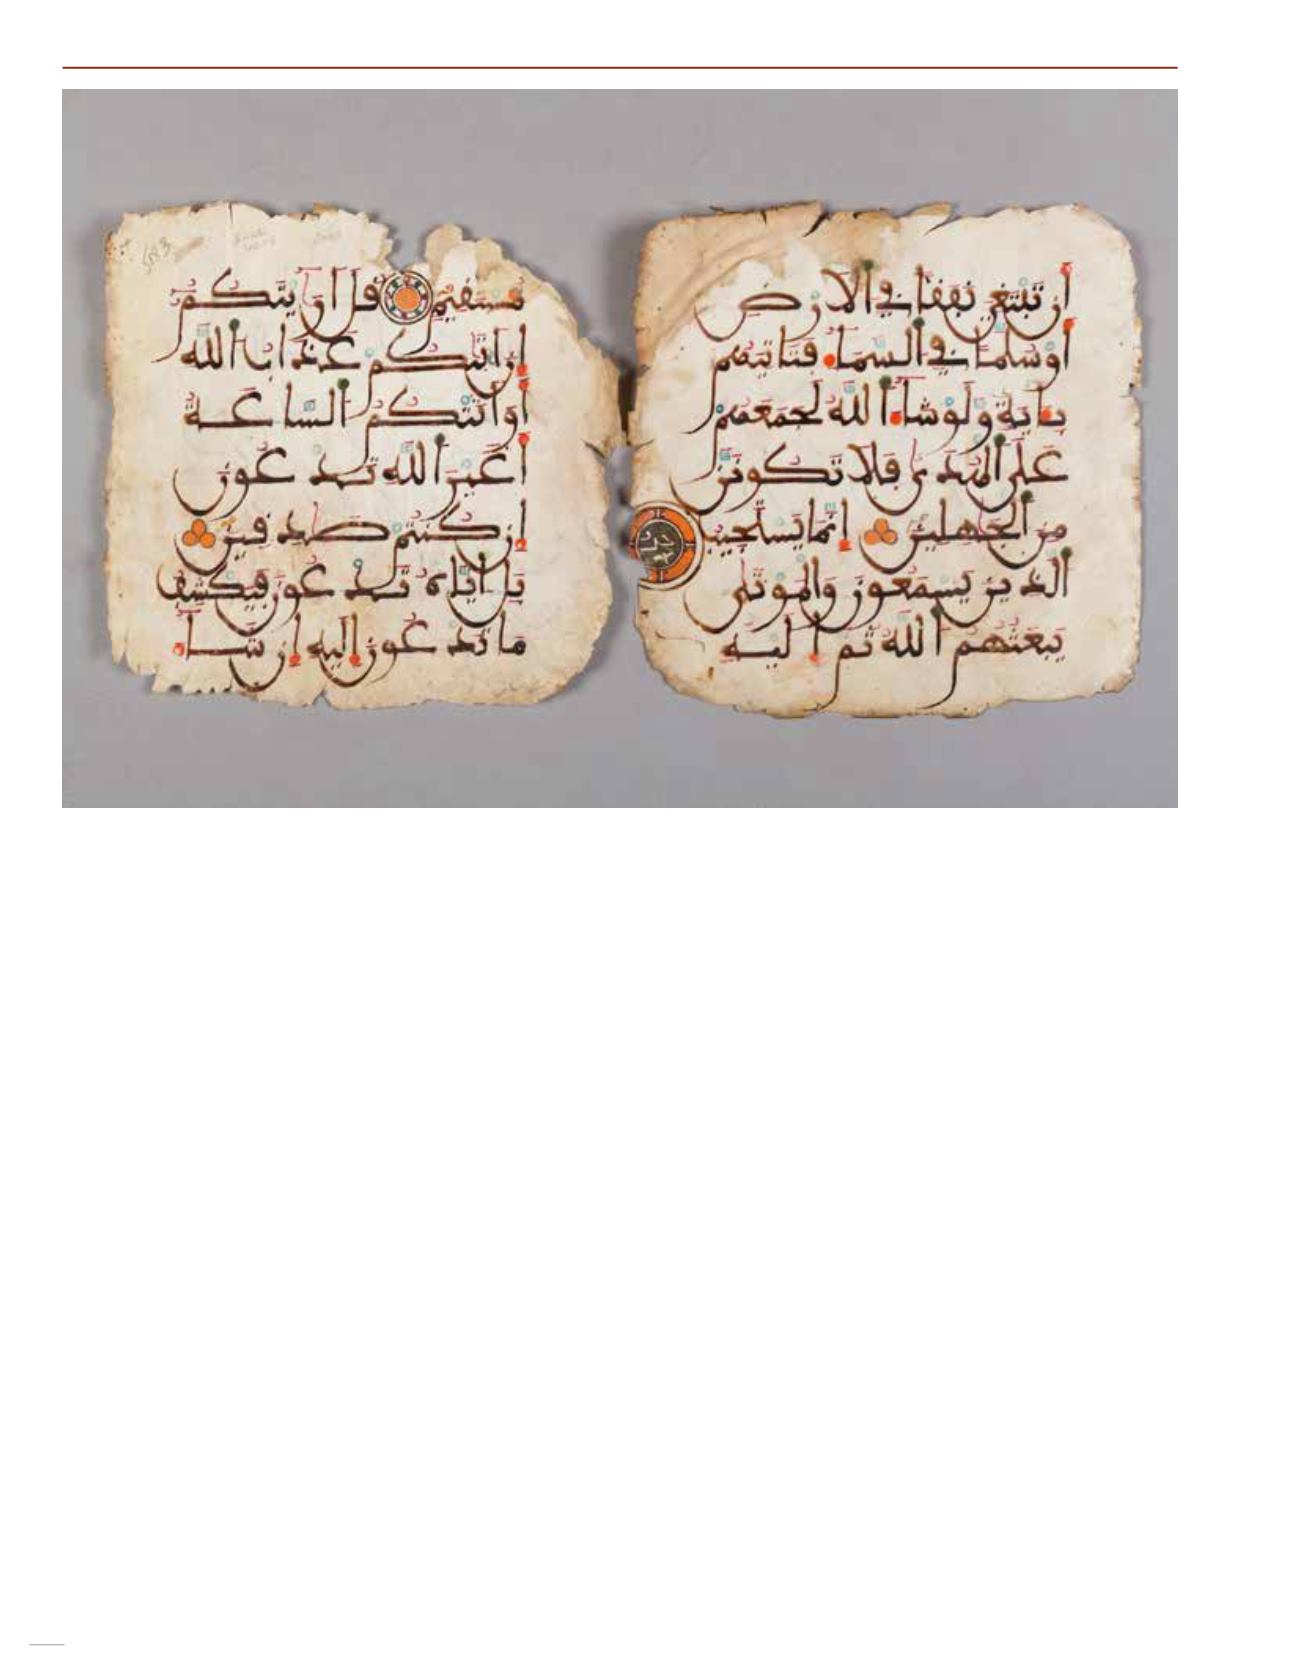 أن تبتغي نفقا في الأرض
أو سلما في السماء فتأتيهم
بأية ولو شاء الله لجمعهم
على الهدى فلا تكونن
من الجهلين إنما يستجيب
الذين يسمعون والموتى
يبعثهم الله ثم إليه
مستقيم قل أريتكم
إن أتيكم عذاب الله
أو أتتكم الساعة
أغير الله تدعون
إن كنتم صدقين
بل إياه تدعون فيكشف
ما تدعون إليه إن شاء